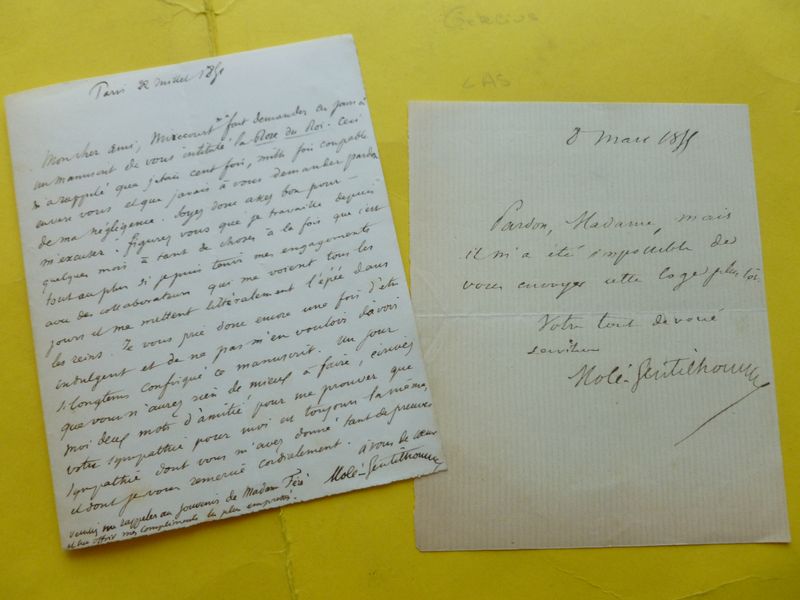 Gercius
LAS
Paris 22 juillet 185
Mon cher ami, Mirecourt fait demander en passant
un manuscrit de vous intitulé la Rose du Roi. Ceci
m'a rappelé que j'étais cent fois, mille fois coupable
envers vous et que j'avais à vous demander pardon
de ma négligence. Soyez donc assez bon pour
m'excuser : figurez vous que je travaille depuis
quelques mois à tant de choses à la fois que c'est
tout au plus si je puis tenir mes engagements
avec des collaborateurs qui me voient tous les
jours et me mettent littéralement l'épée dans
les reins. Je vous prie donc encore une fois d'être
indulgent et de ne pas m'en vouloir d'avoir
si longtems confisqué ce manuscrit. Un jour
que vous n'aurez rien de mieux à faire, écrivez
moi deux mots d'amitié pour me prouver que
votre sympathie pour moi est toujours la même,
sympathie dont vous m'avez donné tant de preuves
et dont je vous remercie cordialement.
à vous de cœur
Molé-Gentilhomme
veuillez me rappeler au souvenir de Madame Féré
et lui offrir mes compliments les plus empressés.
8 Mars 1855
Pardon, Madame, mais
il m'a été impossible de
vous envoyer cette loge plus tôt.
Votre tout dévoué
serviteur
Molé-Gentilhomme